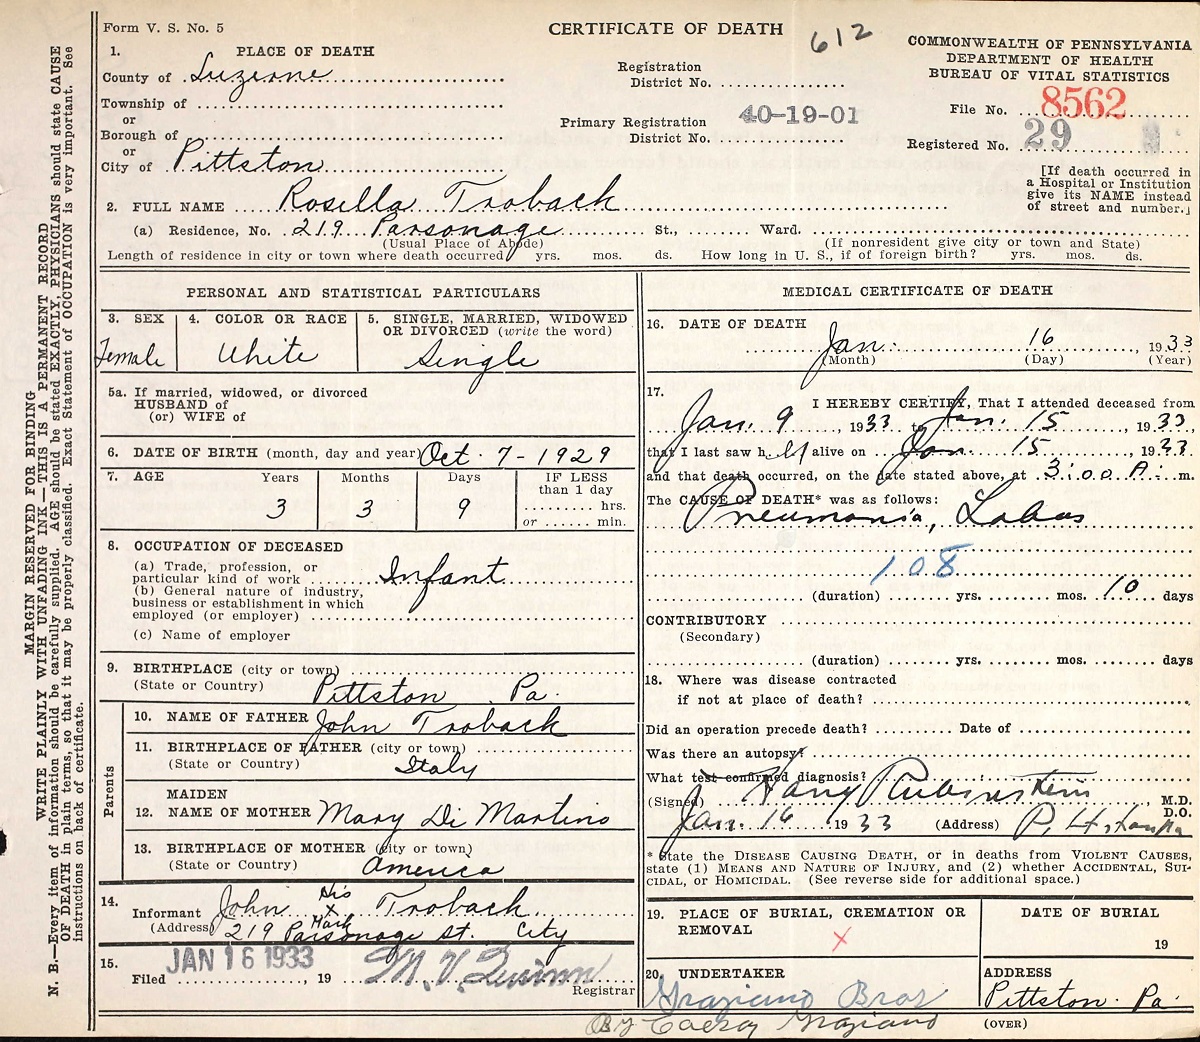 Form V. S. No. 5
CERTIFICATE OF DEATH
612
COMMONWEALTH OF PENNSYLVANIA
DEPARTMENT OF HEALTH
BUREAU OF VITAL STATISTICS
1. PLACE OF DEATH
County of Luzerne
Township of
or
Borough of
or
City of Pittston
Registration
District No.
Primary Registration
District No. 40-19-01
File No. 8562
Registered No. 29
[If death occurred in
a Hospital or Institution
give its NAME instead
of street and number.]
2. FULL NAME Rosella Troback
(a) Residence, No. 219 Parsonage St., Ward.
(Usual Place of Abode) (If nonresident give city or town and State)
Length of residence in city or town where death occurred yrs. mos. ds. How long in U. S., if of foreign birth? yrs. mos. ds.
PERSONAL AND STATISTICAL PARTICULARS
3. SEX
Female
4. COLOR OR RACE
White
5. SINGLE, MARRIED, WIDOWED
OR DIVORCED (write the word)
Single
5a. If married, widowed, or divorced
HUSBAND of
(or) WIFE of
6. DATE OF BIRTH (month, day and year) Oct. 7-1929
7. AGE Years Months Days IF LESS
than 1 day
3 3 9 hrs.
or min.
8. OCCUPATION OF DECEASED
(a) Trade, profession, or
particular kind of work Infant
(b) General nature of industry,
business or establishment in which
employed (or employer)
(c) Name of employer
9. BIRTHPLACE (city or town)
(State or Country) Pittston Pa.
Parents
10. NAME OF FATHER John Troback
11. BIRTHPLACE OF FATHER (city or town)
(State or Country) Italy
12. MAIDEN
NAME OF MOTHER Mary Di Martino
13. BIRTHPLACE OF MOTHER (city or town)
(State or Country) America
14. His
Informant John X Troback
Mark
(Address) 219 Parsonage St. City
15. Filed JAN 16 1933, 19 M. V. Quinn
Registrar
MEDICAL CERTIFICATE OF DEATH
16. DATE OF DEATH
Jan. 16 1933
(Month) (Day) (Year)
17. I HEREBY CERTIFY, That I attended deceased from
Jan. 9, 1933 to Jan. 15, 1933,
that I last saw her alive on Jan. 15 1933
and that death occurred, on the date stated above, at 3:00 A. m.
The CAUSE OF DEATH* was as follows:
Pneumonia, Lobar
108
(duration) yrs. mos. 10 days
CONTRIBUTORY
(Secondary)
(duration) yrs. mos. days
18. Where was disease contracted
if not at place of death?
Did an operation precede death? Date of
Was there an autopsy?
What test confirmed diagnosis?
(Signed) Harry Rubinstein M.D.
D.O.
Jan. 16 1933 (Address) Pittston Pa
* State the DISEASE CAUSING DEATH, or in deaths from VIOLENT CAUSES,
state (1) MEANS AND NATURE OF INJURY, and (2) whether ACCIDENTAL, SUI-
CIDAL, or HOMICIDAL. (See reverse side for additional space.)
19. PLACE OF BURIAL, CREMATION OR
REMOVAL
X
DATE OF BURIAL
19
20. UNDERTAKER
Graziano Bros
By Graziano
ADDRESS
Pittston. Pa.
(OVER)
MARGIN RESERVED FOR BINDING
WRITE PLAINLY WITH UNFADING INK—THIS IS A PERMANENT RECORD
N. B.—Every item of information should be carefully supplied. AGE should be stated EXACTLY. PHYSICIANS should state CAUSE
OF DEATH in plain terms, so that it may be properly classified. Exact Statement of OCCUPATION is very important. See
instructions on back of certificate.